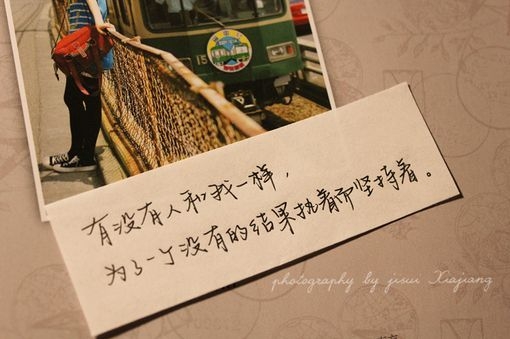 15
有没有人和我一样，
为了一个没有的结果执着而坚持着。
photography by jisui Xiajiang